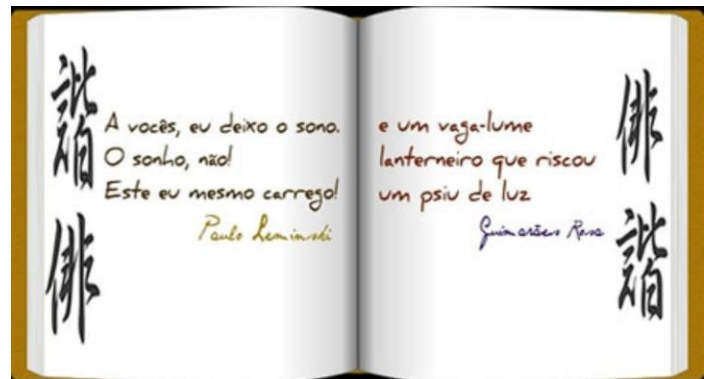 諧
俳
A vocês, eu deixo o sono.
O sonho, não!
Este eu mesmo carrego!
Paulo Leminski
e um vaga-lume
lanterneiro que riscou
um psiu de luz
Guimarães Rosa
俳
諧